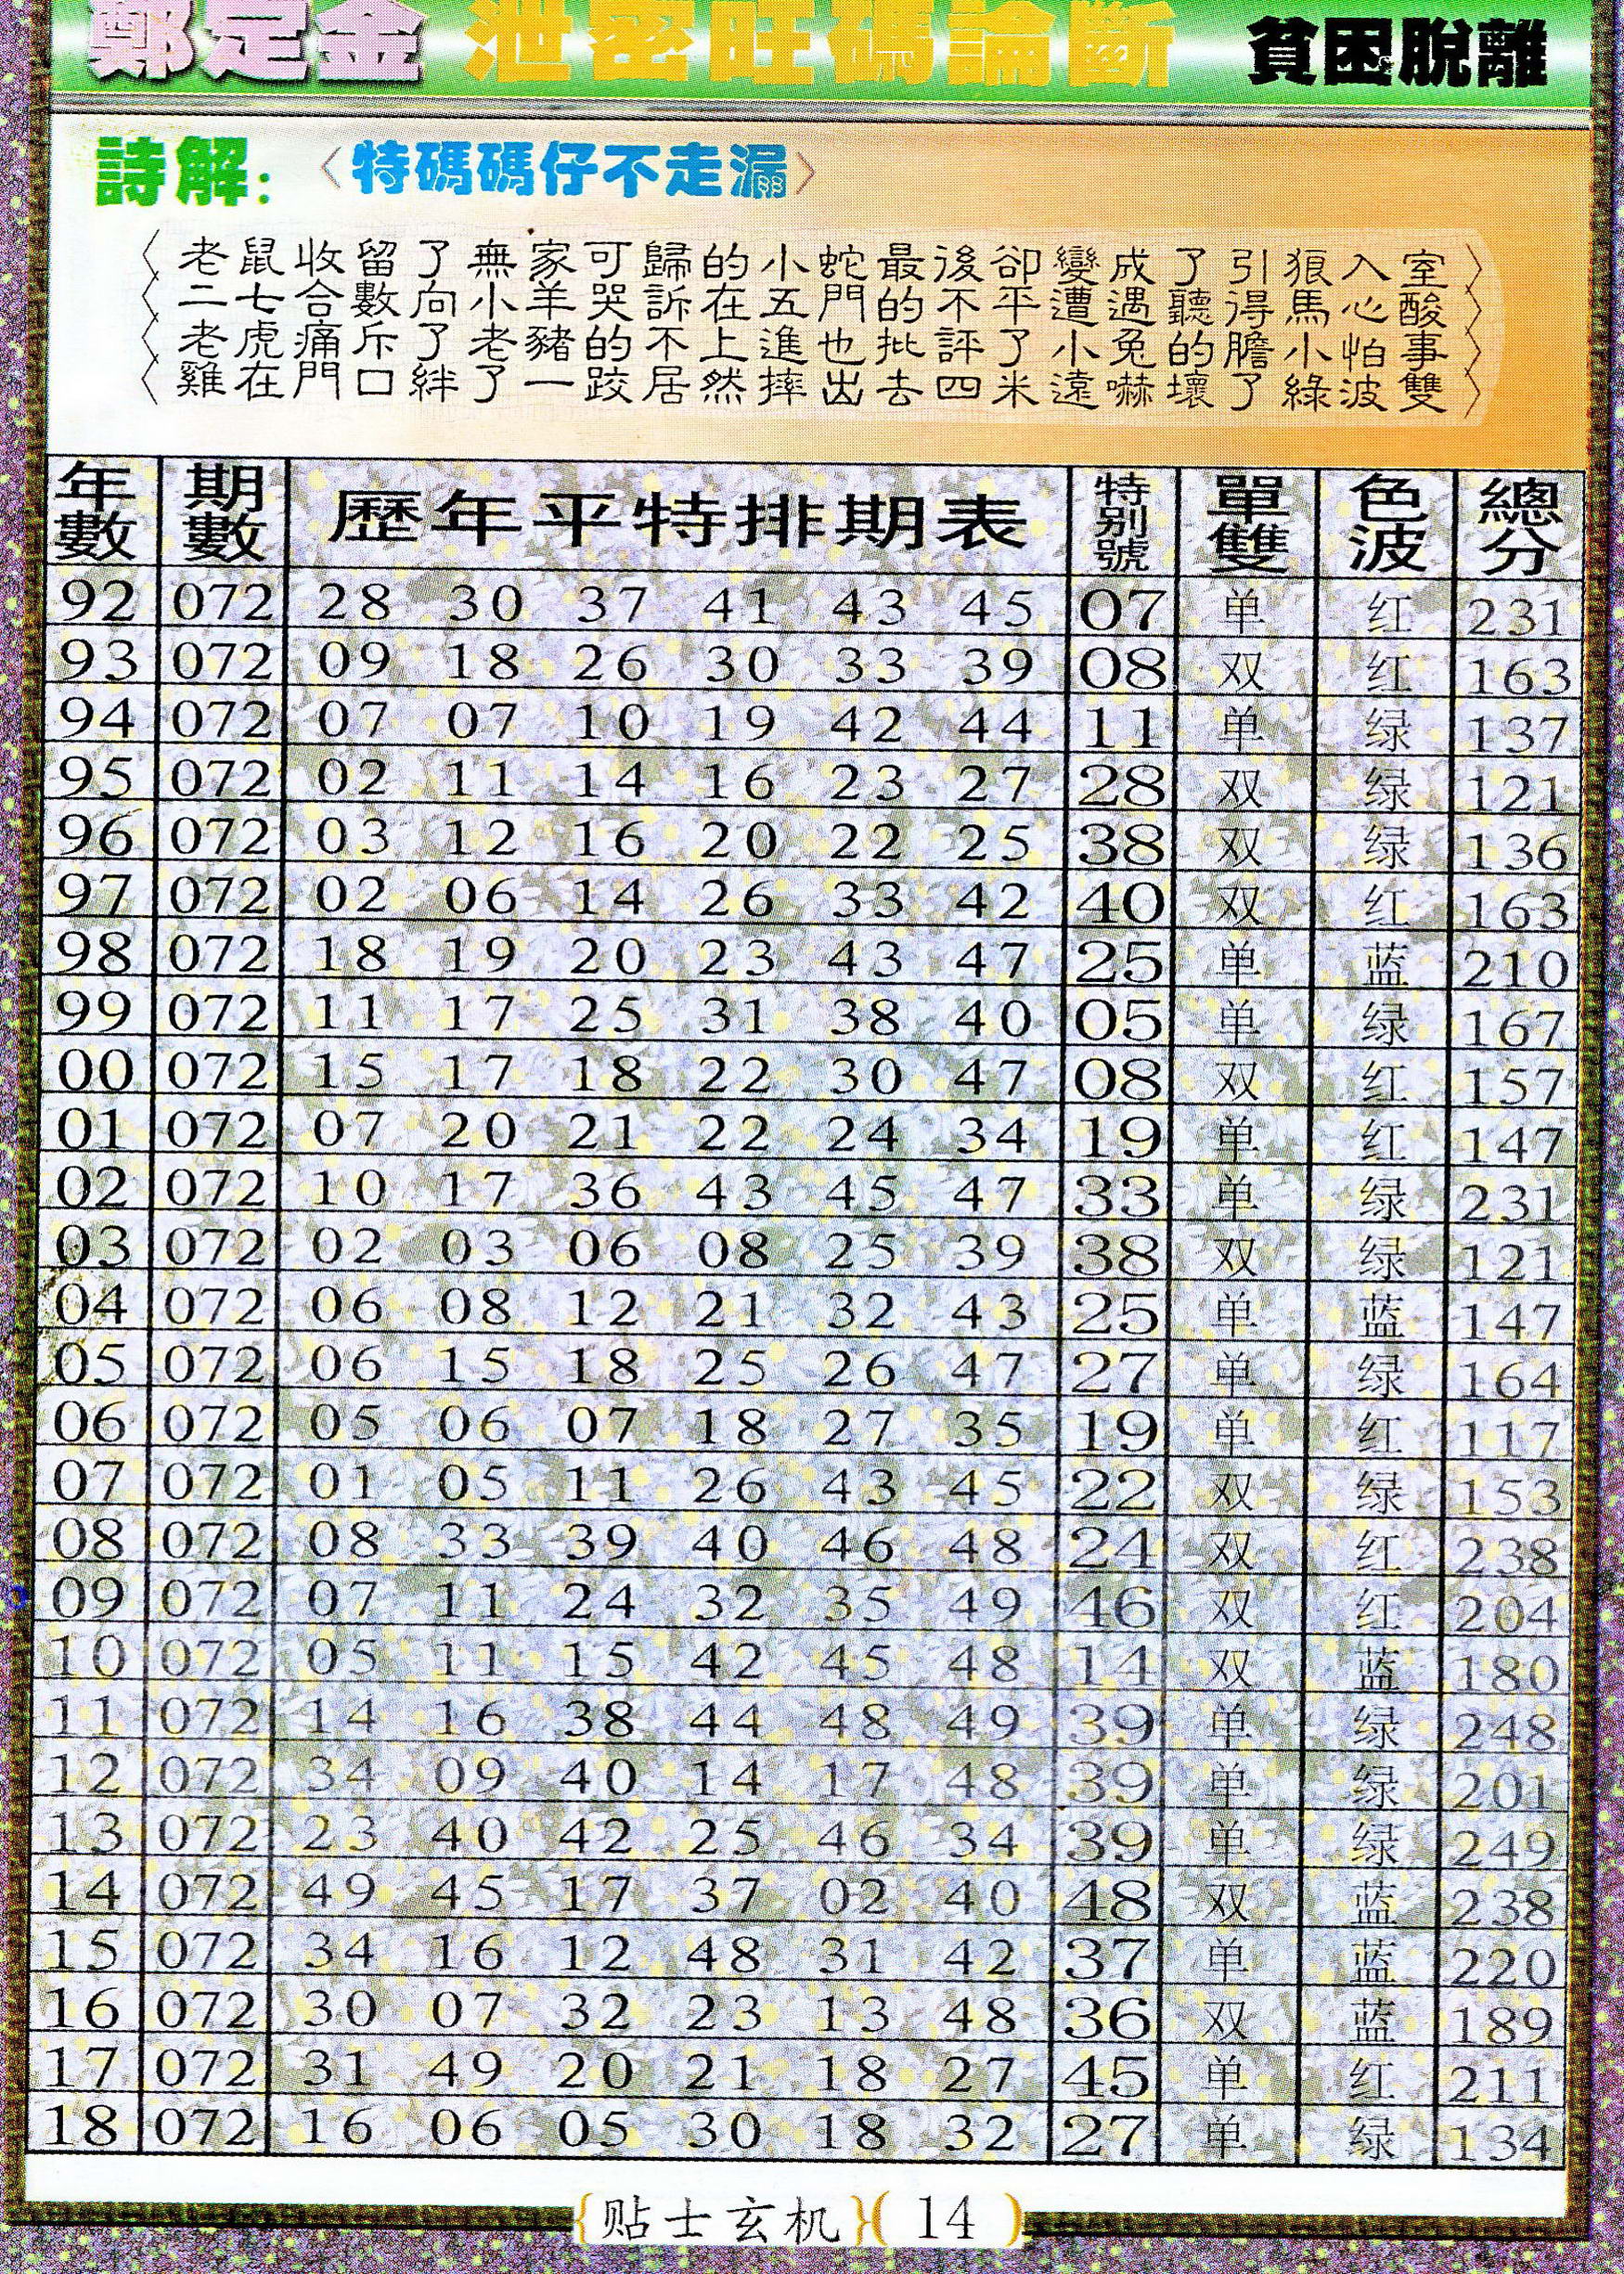 鄭定金 泄密旺碼論斷 貧困脫離
詩解：〈特碼碼仔不走漏〉
〈老鼠收留了無家可歸的小蛇最後卻變成了引狼入室〉
〈二七合數向小羊哭訴在五門的不平遭遇聽得馬心酸〉
〈老虎痛斥了老豬的不上進也批評了小兔的膽小怕事〉
〈雞在門口絆了一跤居然摔出去四米遠嚇壞了綠波雙〉
年數 期數 歷年平特排期表 特别號 單雙 色波 總分
92 072 28 30 37 41 43 45 07 单 红 231
93 072 09 18 26 30 33 39 08 双 红 163
94 072 07 07 10 19 42 44 11 单 绿 137
95 072 02 11 14 16 23 27 28 双 绿 121
96 072 03 12 16 20 22 25 38 双 绿 136
97 072 02 06 14 26 33 42 40 双 红 163
98 072 18 19 20 23 43 47 25 单 蓝 210
99 072 11 17 25 31 38 40 05 单 绿 167
00 072 15 17 18 22 30 47 08 双 红 157
01 072 07 20 21 22 24 34 19 单 红 147
02 072 10 17 36 43 45 47 33 单 绿 231
03 072 02 03 06 08 25 39 38 双 绿 121
04 072 06 08 12 21 32 43 25 单 蓝 147
05 072 06 15 18 25 26 47 27 单 绿 164
06 072 05 06 07 18 27 35 19 单 红 117
07 072 01 05 11 26 43 45 22 双 绿 153
08 072 08 33 39 40 46 48 24 双 红 238
09 072 07 11 24 32 35 49 46 双 红 204
10 072 05 11 15 42 45 48 14 双 蓝 180
11 072 14 16 38 44 48 49 39 单 绿 248
12 072 34 09 40 14 17 48 39 单 绿 201
13 072 23 40 42 25 46 34 39 单 绿 249
14 072 49 45 17 37 02 40 48 双 蓝 238
15 072 34 16 12 48 31 42 37 单 蓝 220
16 072 30 07 32 23 13 48 36 双 蓝 189
17 072 31 49 20 21 18 27 45 单 红 211
18 072 16 06 05 30 18 32 27 单 绿 134
{贴士玄机}(14)